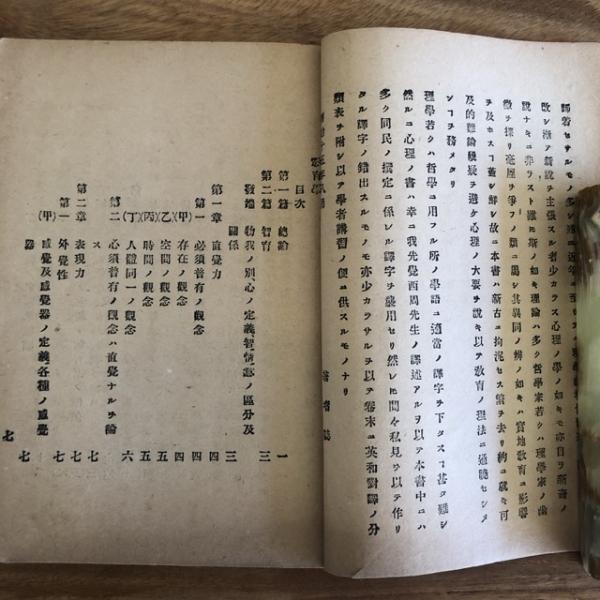 歸着セサルモノ多シ
敗シ漸ク新說ヲ主張スル者少カラス心理ノ學ノ如キモ亦自ラ新奇ノ
說ナキニ非ラスト雖モ斯ノ如キ理論ハ多ク哲學家若クハ理學家ノ論
徵ヲ採リ毫厘ヲ爭フノ類ニ屬シ其異同ノ辨ノ如キハ實地敎育ニ影響
ヲ及ホスコト蓋シ鮮シ故ニ本書ハ新古ニ拘泥セス繁ヲ去リ約ニ就キ可
及的難論發展ヲ避ケ心理ノ大要ヲ說キ以テ敎育ノ理法ニ通曉センヿ
ンコヲ務メタリ
理學若クハ哲學ニ用フル所ノ學語ニ適當ノ譯字ヲ下タスコト甚タ難シ
然ルニ心理ノ書ハ幸ニ我先覺西周先生ノ譯述アルヲ以テ本書中ニハ
多ク同氏ノ撰定ニ係ル譯字ヲ襲用セリ然レ𪜈間々私見ヲ以テ作リ
タル譯字ノ錯出スルモノモ亦少カラサルヲ以テ卷末ニ英和對譯ノ分
類表ヲ附シ以テ學者講習ノ便ニ供スルモノナリ
著者誌
目次
第一篇 總論 一
第二篇 智育 三
發端 物我ノ別心ノ定義智情意ノ區分及
關係 三
第一章 直覺力 四
第一 必須普有ノ觀念 四
(甲) 存在ノ觀念 四
(乙) 空間ノ觀念 五
(丙) 時間ノ觀念 五
(丁) 人體同一ノ觀念 六
第二 必須普有ノ觀念ハ直覺ナルヲ論
ス 七
第二章 表現力 七
第一 外覺性 七
(甲) 感覺及感覺器ノ定義各種ノ感覺
器 七
七